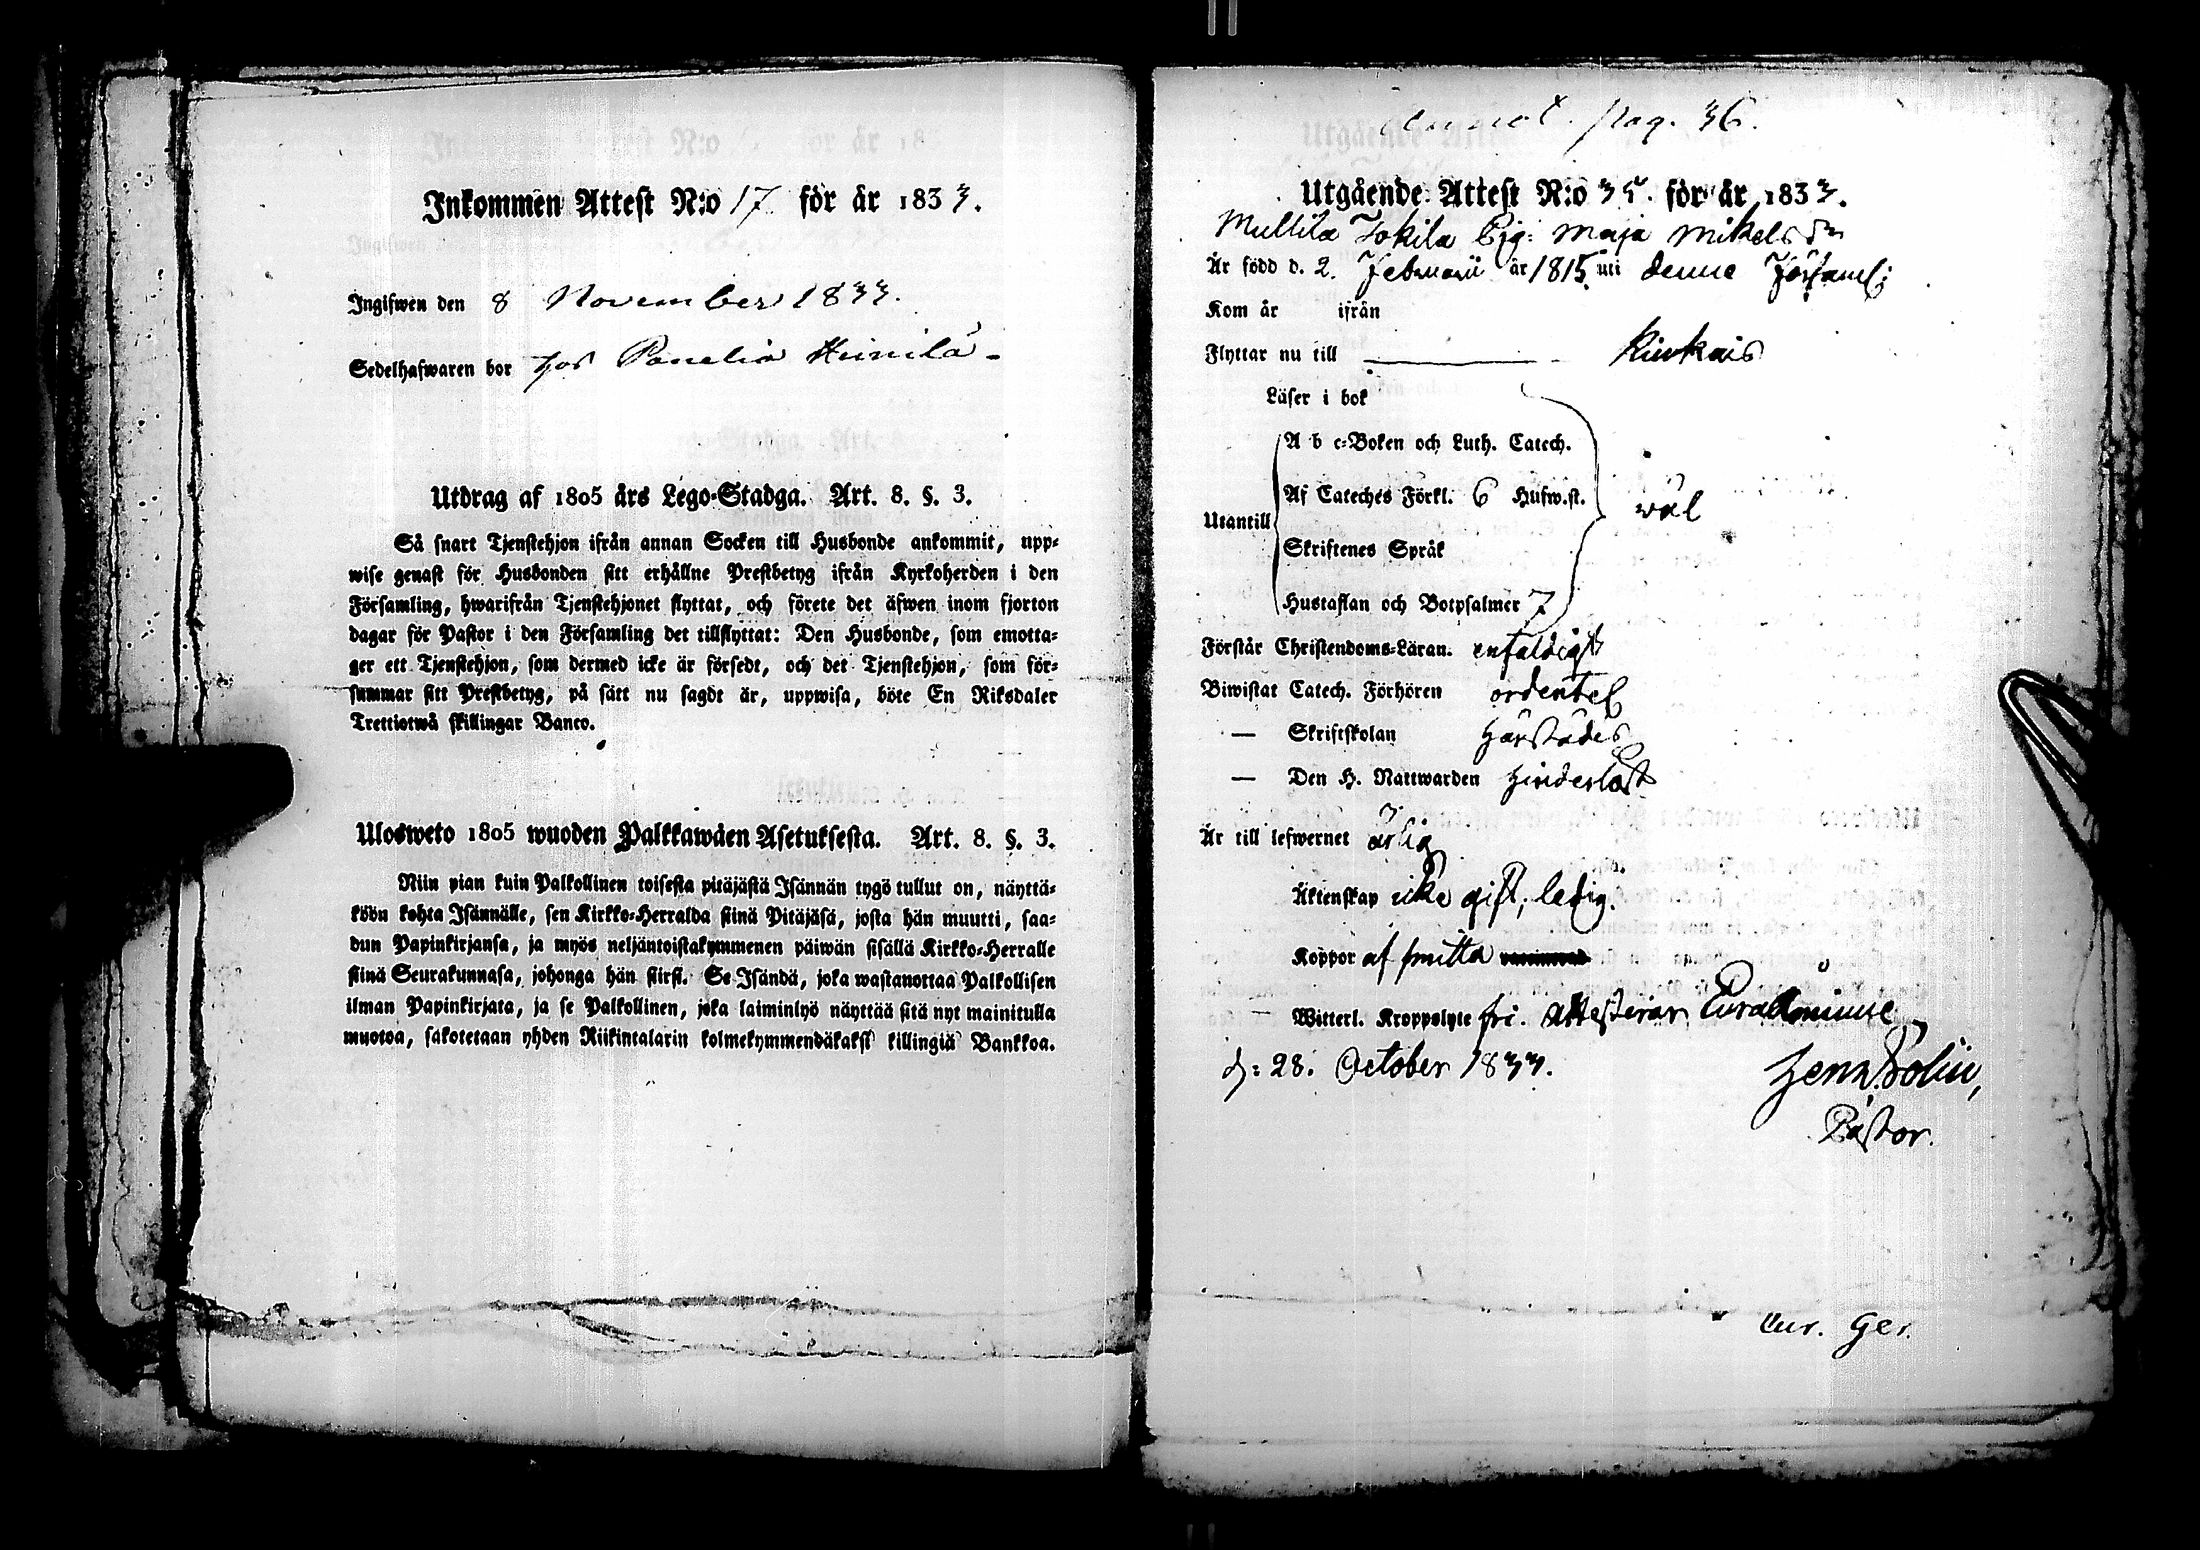 Inkommen Attest N:o 17 för år 1833.
Ingifwen den 8 November 1833.
Sedelhafwaren bor hos Panelia Heinilä
Utdrag af 1805 års Lego-Stadga. Art. 8. §. 3.
Så snart Tjenstehjon ifrån annan Socken till Husbonde ankommit, upp-
wise genast för Husbonden sitt erhållne Prestbetyg ifrån Kyrkoherden i den
Församling, hwarifrån Tjenstehjonet flyttat, och förete det äfwen inom fjorton
dagar för Pastor i den Församling det tillflyttat: Den Husbonde, som emotta-
ger ett Tjenstehjon, som dermed icke är försedt, och det Tjenstehjon, som för-
summar sitt Prestbetyg, på sätt nu sagdt är, uppwisa, böte En Riksdaler
Trettiotwå skillingar Banco.
Ulosweto 1805 wuoden Palkkawäen Asetuksesta. Art. 8. §. 3.
Niin pian kuin Palkollinen toisesta pitäjästä Isännän tygö tullut on, näyttä-
köön kohta Isännälle, sen Kirkko-Herralda siinä Pitäjäsä, josta hän muutti, saa-
dun Papinkirjansa, ja myös neljäntoistakymmenen päiwän sisällä Kirkko-Herralle
siinä Seurakunnasa, johonga hän siirsi. Se Isändä, joka wastanottaa Palkollisen
ilman Papinkirjata, ja se Palkollinen, joka laiminlyö näyttää sitä nyt mainitulla
muotoa, sakotetaan yhden Riikintalarin kolmekymmendäkaksi killingiä Bankkoa.
pag. 36.
Utgående Attest N:o 35. för år 1833.
Mullila Tokila Pig: Maja Mikelsdr
Är född d. 2. Februarii år 1815 uti denne Församl:
Kom år ifrån
Flyttar nu till Kiukais
Läser i bok
A b c-Boken och Luth. Catech.
Af Cateches Förkl. 6 Hufw.st.
wäl
Utantill
Skriftenes Språk
Hustaflan och Botpsalmer 7
Förstår Christendoms-Läran. enfaldigt
Biwistat Catech. Förhören ordentel
— Skriftskolan härstädes
— Den H. Nattwarden hinderlöst
Är till lefwernet ärlig
Äktenskap icke gift, ledig.
Koppor af smitta
Witterl. Kroppslyte fri. attesterar Euraåminne
d: 28. October 1833.
Pastor.